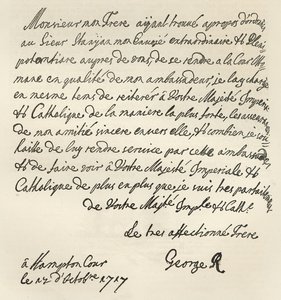 Monsieur mon Frere ayant trouvé apropos d'ordonner
au Sieur Stanjan mon Envoyé extraordinaire & Pleni
potentiaire aupres de vous, de se rendre a la Cour Otto
mane en qualité de mon ambassadeur, je l'ay chargé
en mesme tems de reiterer à Vostre Majesté Imperiale
& Catholique de la maniere la plus forte, les assurances
de mon amitié sincere envers elle, & combien je sou
haitte de luy rendre service par cette ambassade
& de faire voir à Vostre Majesté Imperiale &
Catholique de plus en plus que je suis tres parfaitement
de Vostre Majté Imp.le & Cath.
Le tres affectionné Frere
George R
à Hampton Cour
le 17 d'Octobre 1717